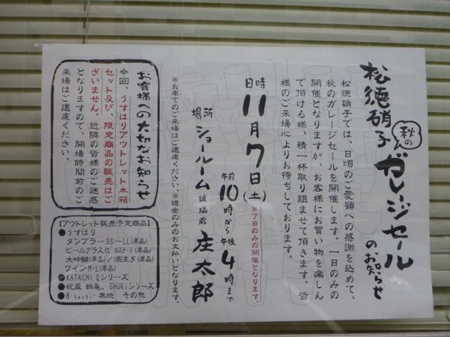 松徳硝子
秋の
ガレージセール
のお知らせ
松徳硝子では、日頃のご愛顧への感謝を込めて、
秋のガレージセールを開催します。一日のみの
開催となりますが、お客様にお買い物を楽しん
で頂ける様、精一杯取り組ませて頂きます。皆
様のご来場心よりお待ちしております。
日時
11月7日(土)
※7日のみの開催となります。
午前10時から午後4時まで
場所
ショールーム
庄太郎
※お車でのご来場はご遠慮ください。※現金のみのお支払いとなります。
お客様への大切なお知らせ
今回、うすはりアウトレット木箱
セット及び、限定商品の販売はご
ざいません。近隣の皆様のご迷惑
となりますので、開場時間前のご
来場はご遠慮ください。
【アウトレット販売予定商品】
●うすはり
タンブラーSS~LL(単品)
ビールグラス
大吟醸(単品)
ワインM・L(単品)
●KATACHI Qシリーズ
SHUKIシリーズ
その他